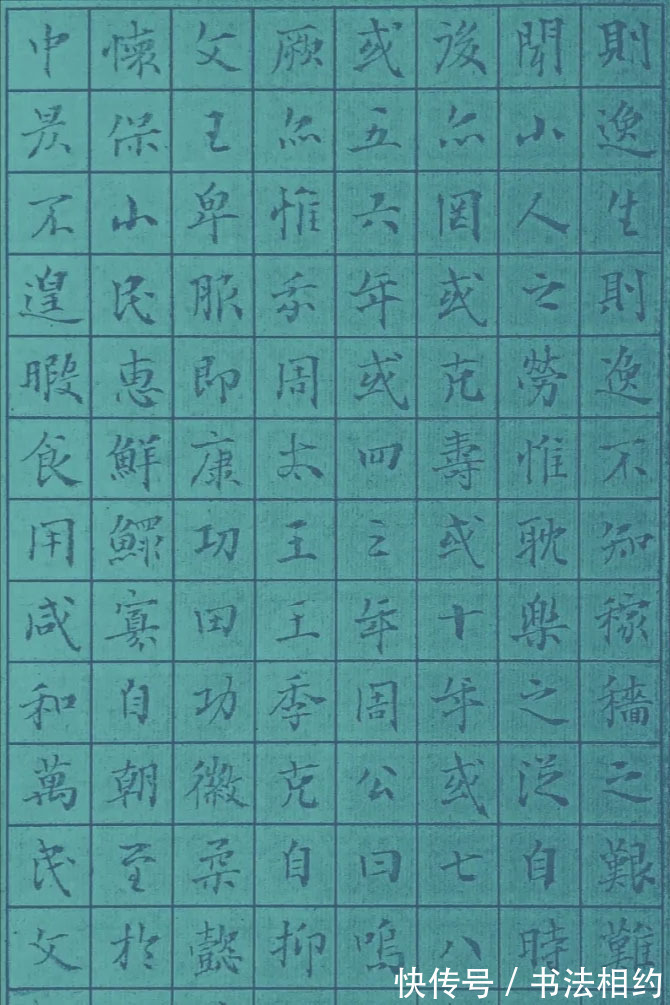 則逸生則逸不知稼穡之艱難
聞小人之勞惟耽樂之從自時
後亦罔或克壽或十年或七八
或五六年或四三年周公曰嗚
厥亦惟我周太王王季克自抑
文王卑服即康功田功徽柔懿
懷保小民恵鮮鰥寡自朝至於
中昃不遑暇食用咸和萬民文
快传号 / 书法相约